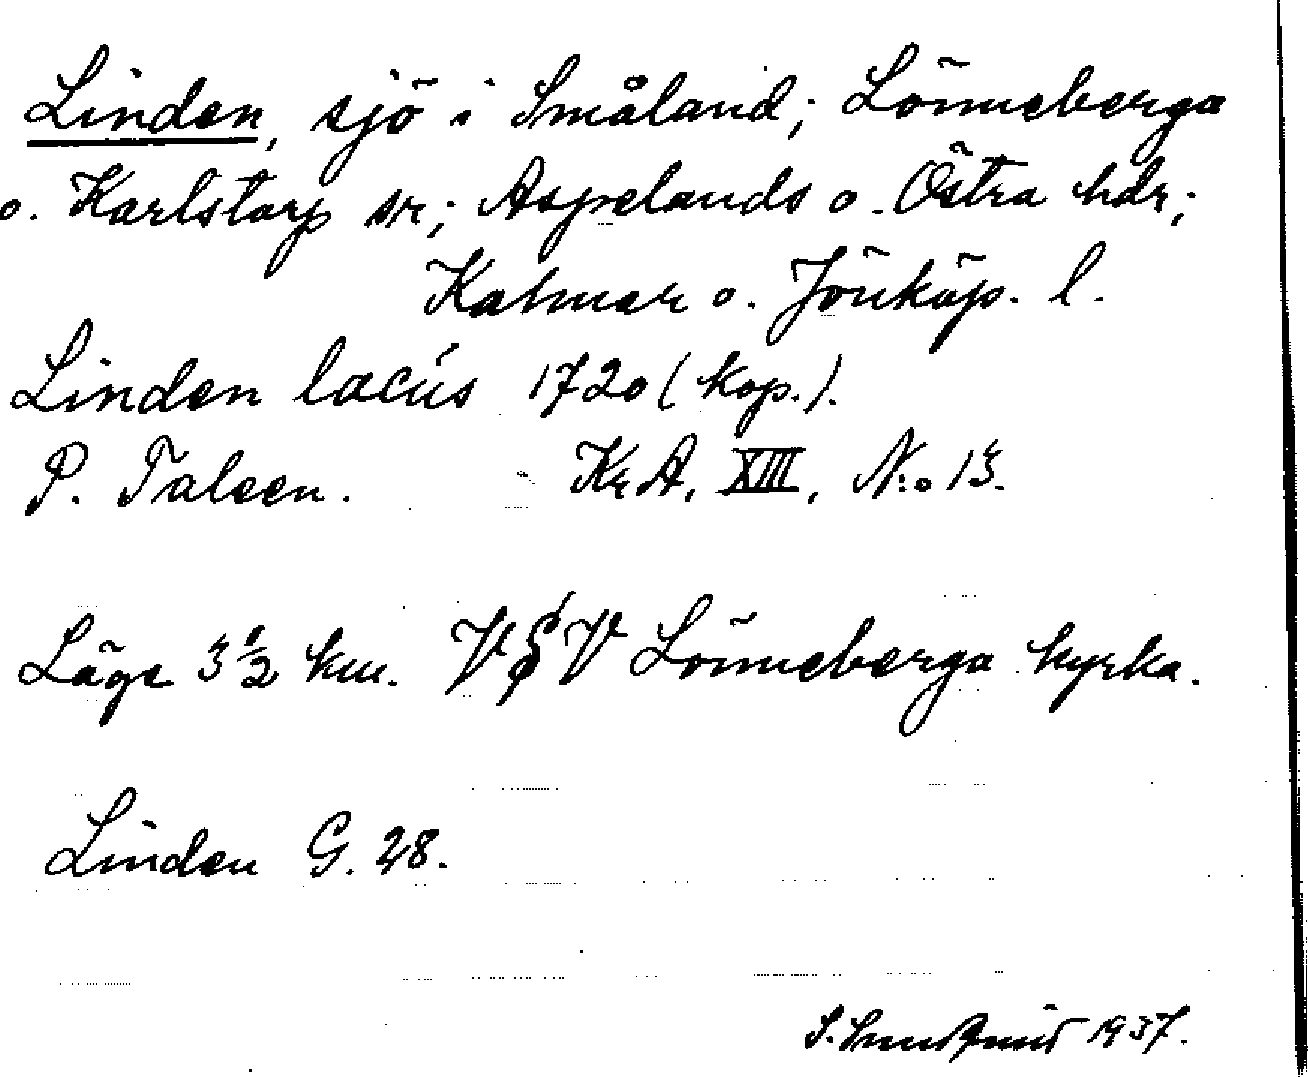 Linden, sjö i Småland; Lönneberga
o. Karlstorp sr; Aspelands o. Östra hdr;
Kalmar o. Jönköp. l.
Linden lacus 1720 (kop.).
P. Talsen. Kr A, XIII, N:o 13.
Läge 3 1/2 km. VSV Lönneberga kyrka.
Linden G. 28.
S. 1937.